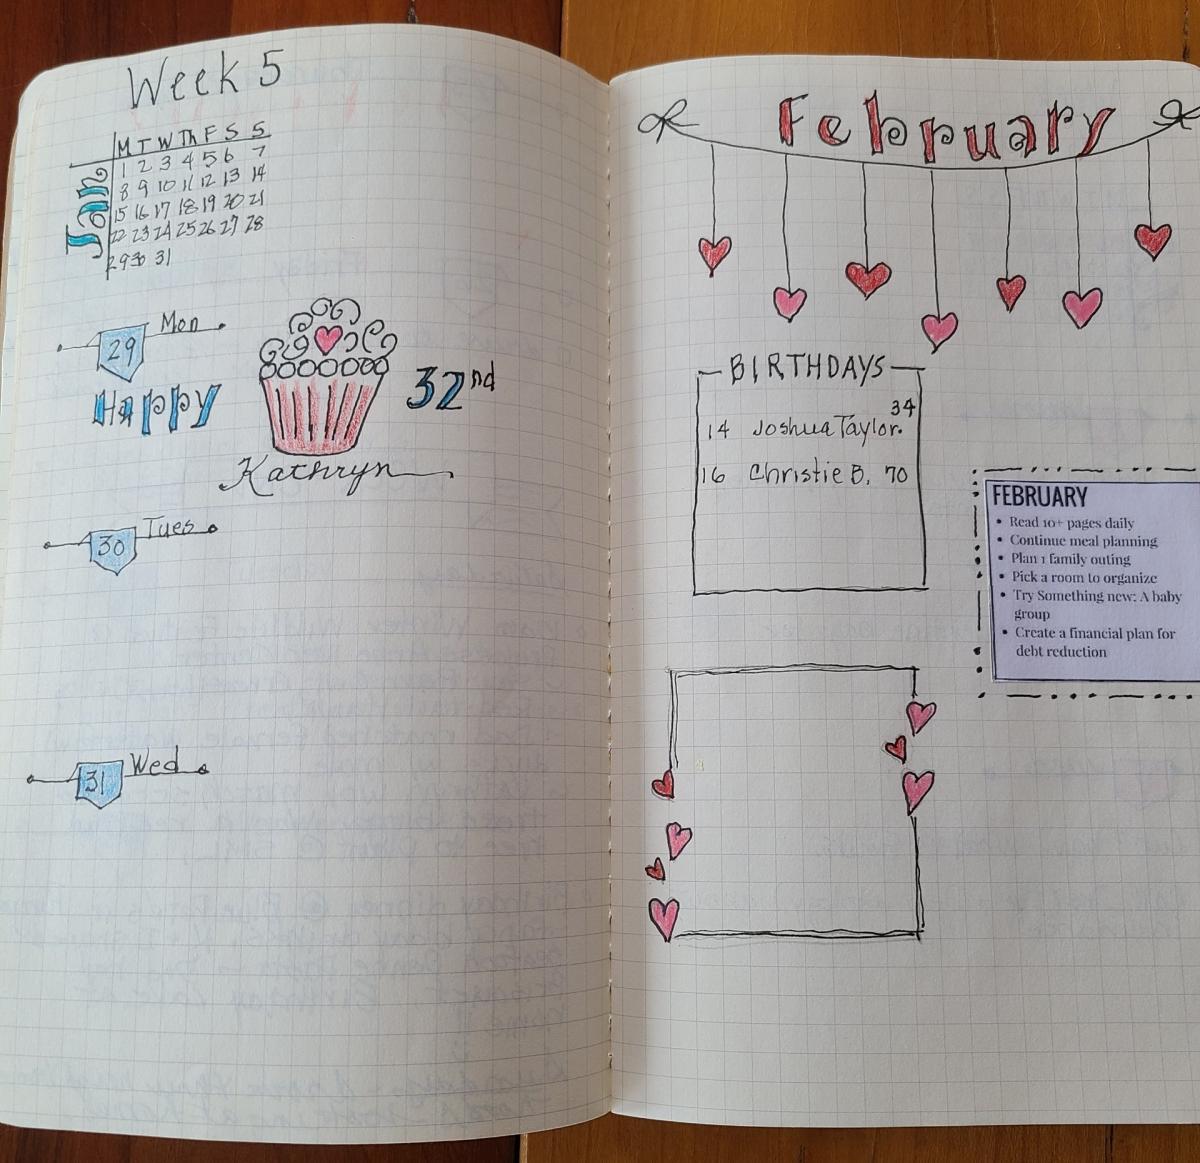 Week 5
Jan
M T W Th F S S
1 2 3 4 5 6 7
8 9 10 11 12 13 14
15 16 17 18 19 20 21
22 23 24 25 26 27 28
29 30 31
29 Mon
Happy 32nd
Kathryn
30 Tues
31 Wed
February
BIRTHDAYS
14 Joshua Taylor. 34
16 Christie B. 70
FEBRUARY
• Read 10+ pages daily
• Continue meal planning
• Plan 1 family outing
• Pick a room to organize
• Try Something new: A baby
group
• Create a financial plan for
debt reduction